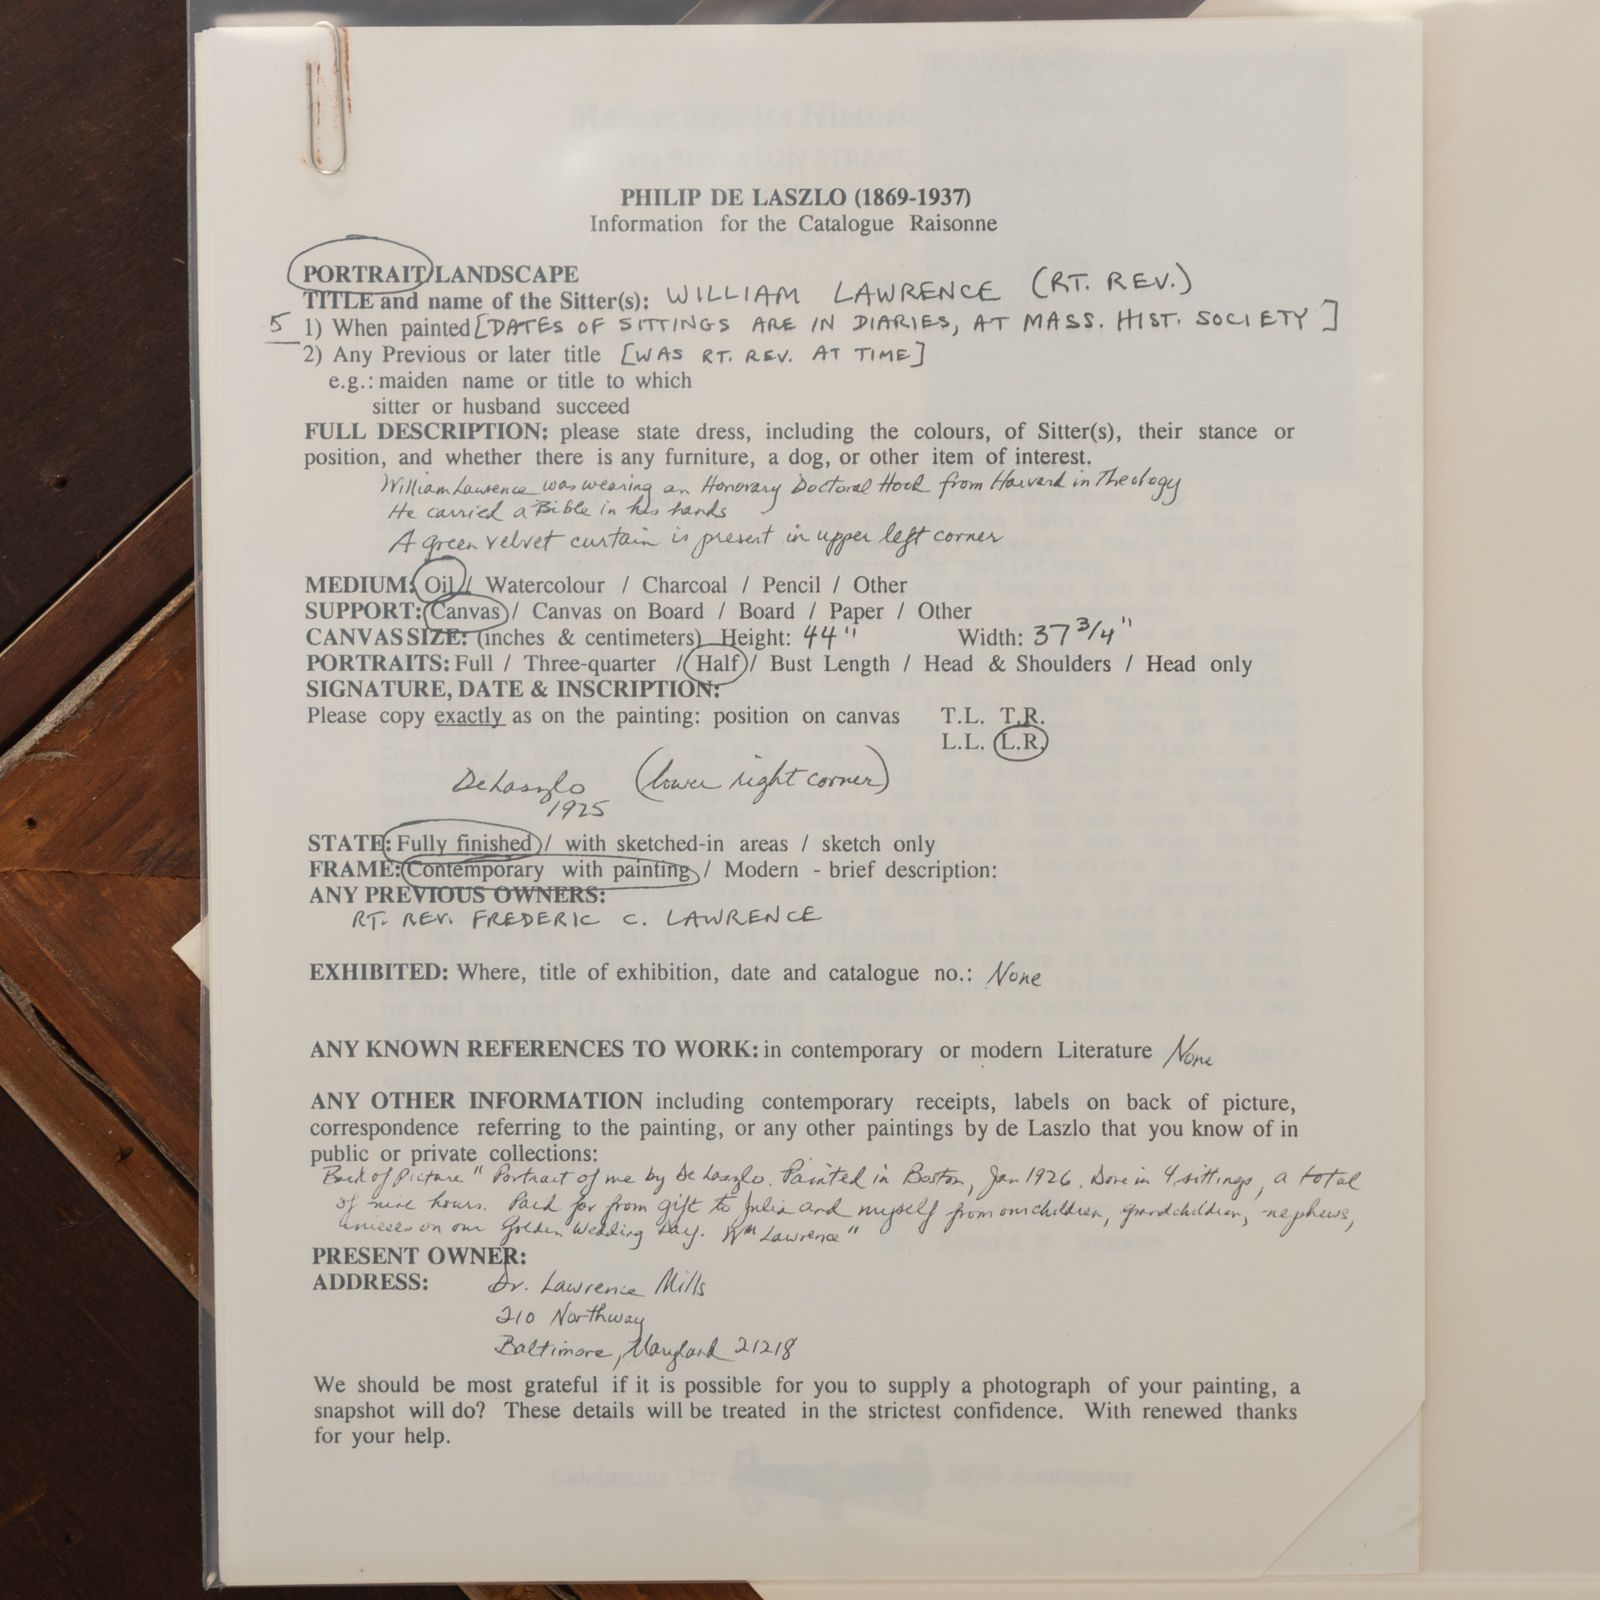 PHILIP DE LASZLO (1869-1937)
Information for the Catalogue Raisonne
PORTRAIT/LANDSCAPE
TITLE and name of the Sitter(s): WILLIAM LAWRENCE (RT. REV.)
5 1) When painted [DATES OF SITTINGS ARE IN DIARIES, AT MASS. HIST. SOCIETY]
2) Any Previous or later title [WAS RT. REV. AT TIME]
e.g.: maiden name or title to which
sitter or husband succeed
FULL DESCRIPTION: please state dress, including the colours, of Sitter(s), their stance or
position, and whether there is any furniture, a dog, or other item of interest.
William Lawrence was wearing an Honorary Doctoral Hood from Harvard in Theology
He carried a Bible in his hands
A green velvet curtain is present in upper left corner
MEDIUM: Oil / Watercolour / Charcoal / Pencil / Other
SUPPORT: Canvas / Canvas on Board / Board / Paper / Other
CANVAS SIZE: (inches & centimeters) Height: 44" Width: 37 3/4"
PORTRAITS: Full / Three-quarter / Half / Bust Length / Head & Shoulders / Head only
SIGNATURE, DATE & INSCRIPTION:
Please copy exactly as on the painting: position on canvas T.L. T.R.
L.L. L.R.
De Laszlo (lower right corner)
1925
STATE: Fully finished / with sketched-in areas / sketch only
FRAME: Contemporary with painting / Modern - brief description:
ANY PREVIOUS OWNERS:
RT. REV. FREDERIC C. LAWRENCE
EXHIBITED: Where, title of exhibition, date and catalogue no.: None
ANY KNOWN REFERENCES TO WORK: in contemporary or modern Literature None
ANY OTHER INFORMATION including contemporary receipts, labels on back of picture,
correspondence referring to the painting, or any other paintings by de Laszlo that you know of in
public or private collections:
Back of Picture "Portrait of me by De Laszlo. Painted in Boston, Jan 1926. Done in 4 sittings, a total
of nine hours. Paid for from gift to Julia and myself from our children, grandchildren, nephews,
nieces on our Golden Wedding Day. Wm Lawrence"
PRESENT OWNER:
ADDRESS: Dr. Lawrence Mills
210 Northway
Baltimore, Maryland 21218
We should be most grateful if it is possible for you to supply a photograph of your painting, a
snapshot will do? These details will be treated in the strictest confidence. With renewed thanks
for your help.